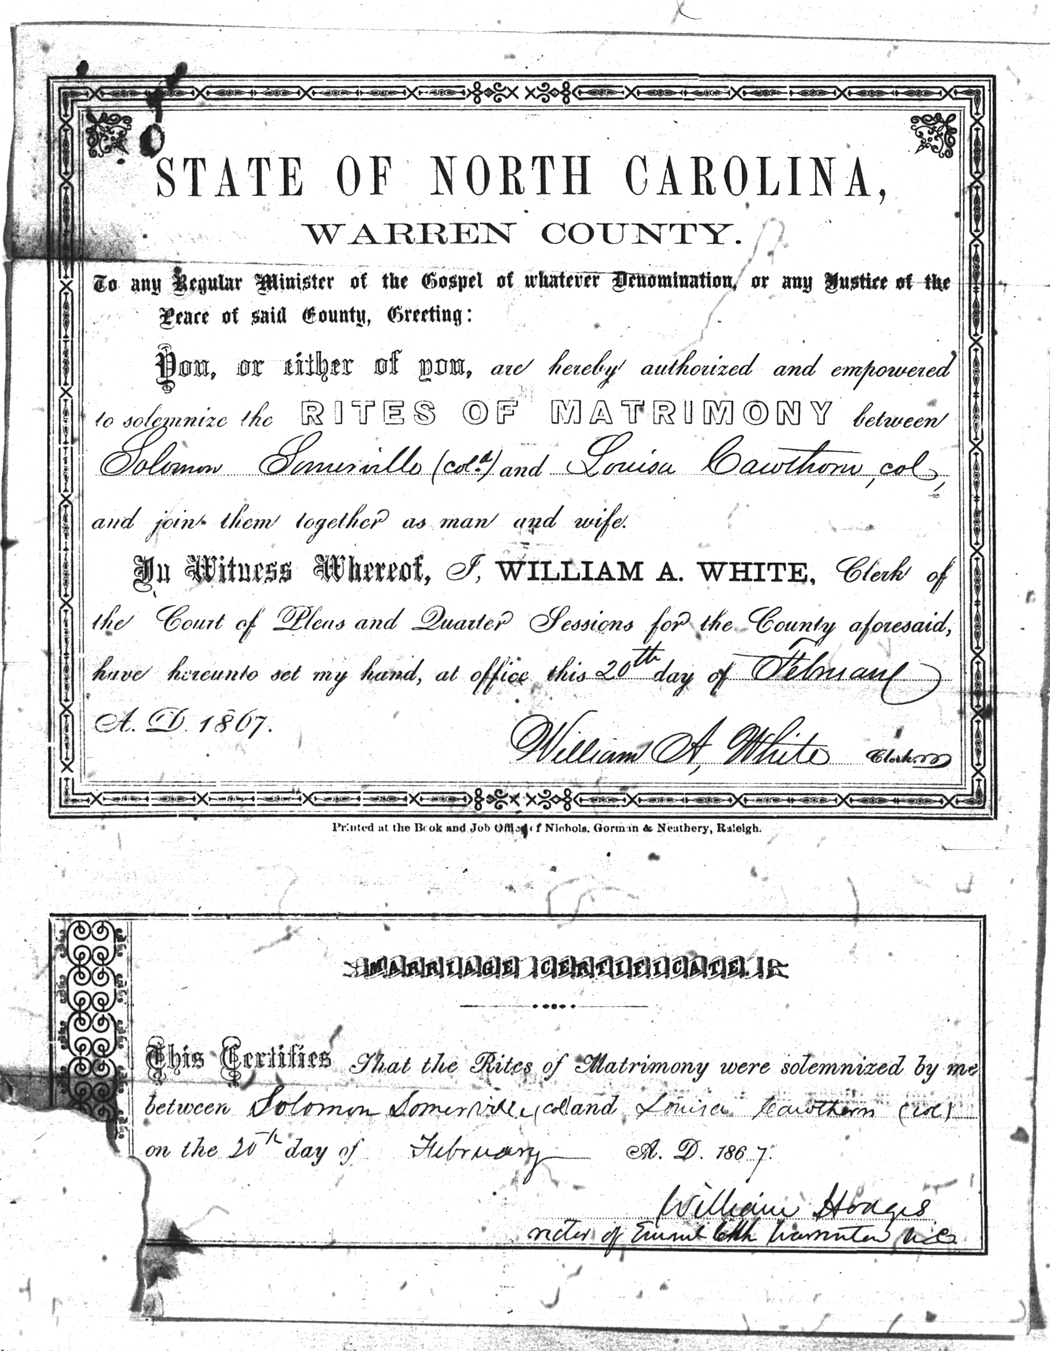 STATE OF NORTH CAROLINA,
WARREN COUNTY.
To any Regular Minister of the Gospel of whatever Denomination, or any Justice of the
Peace of said County, Greeting:
You, or either of you, are hereby authorized and empowered
to solemnize the RITES OF MATRIMONY between
Solomon Somerville (cold) and Louisa Cawthorn, col,
and join them together as man and wife.
In Witness Whereof, I, WILLIAM A. WHITE, Clerk of
the Court of Pleas and Quarter Sessions for the County aforesaid,
have hereunto set my hand, at office this 20th day of February
A. D. 1867.
William A. White Clerk.
Printed at the Book and Job Office of Nichols, Gorman & Neathery, Raleigh.
MARRIAGE CERTIFICATE.
This Certifies That the Rites of Matrimony were solemnized by me
between Solomon Somerville (col) and Louisa Cawthorn (col)
on the 20th day of February A. D. 1867.
William Hodges
rector of Chh N.C.